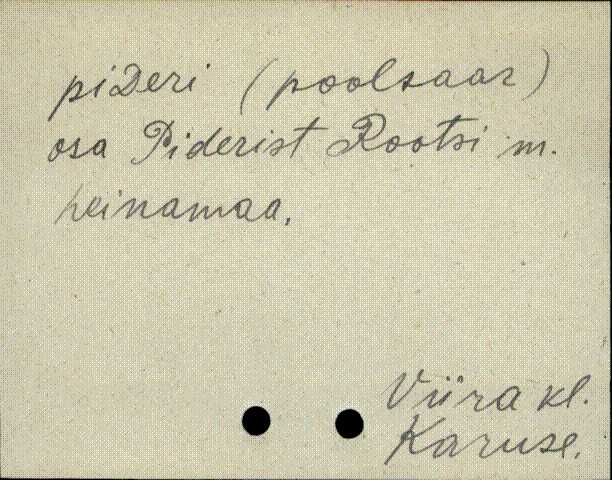 piDeri (poolsaar)
osa Piderist Rootsi m.
heinamaa.
Viira kl.
Karuse.